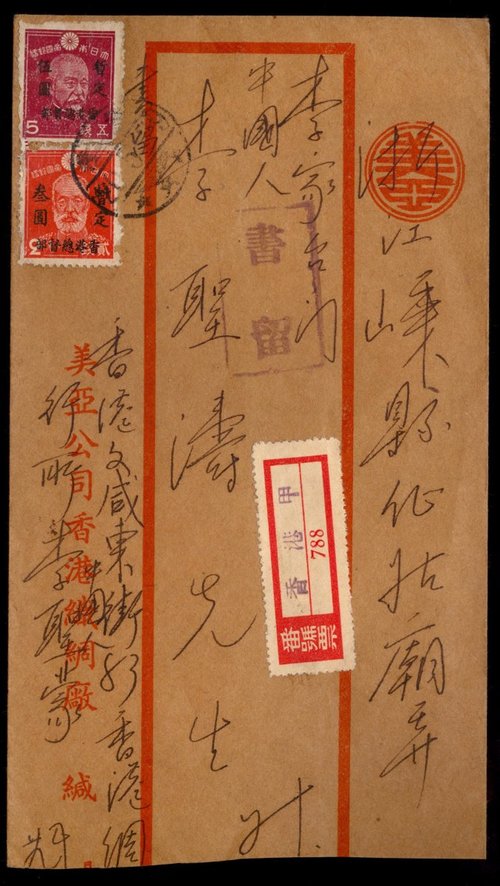 浙江嵊縣仏姑廟弄
李家台门
中國人
李聖濤先生
書留
香港 甲
788
番號票
大日本帝國郵便
暫定
伍圓
香港總督部
5 五錢
大日本帝國郵便
暫定
叁圓
香港總督部
2
香港文咸東街
香港綢
美亞公司香港織綢廠 緘
中國人
李聖